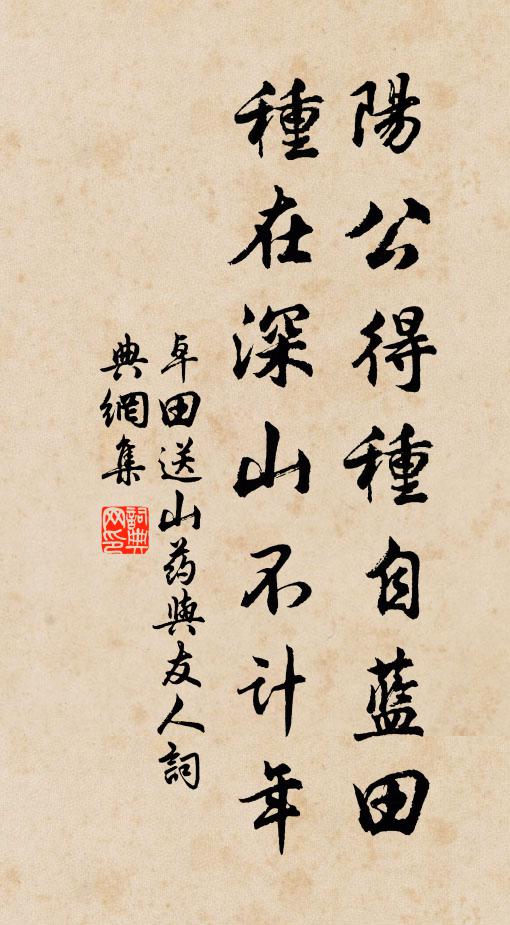 陽公得種自藍田
種在深山不計年
卓田送山药與友人詞
典網集
詞典
网印